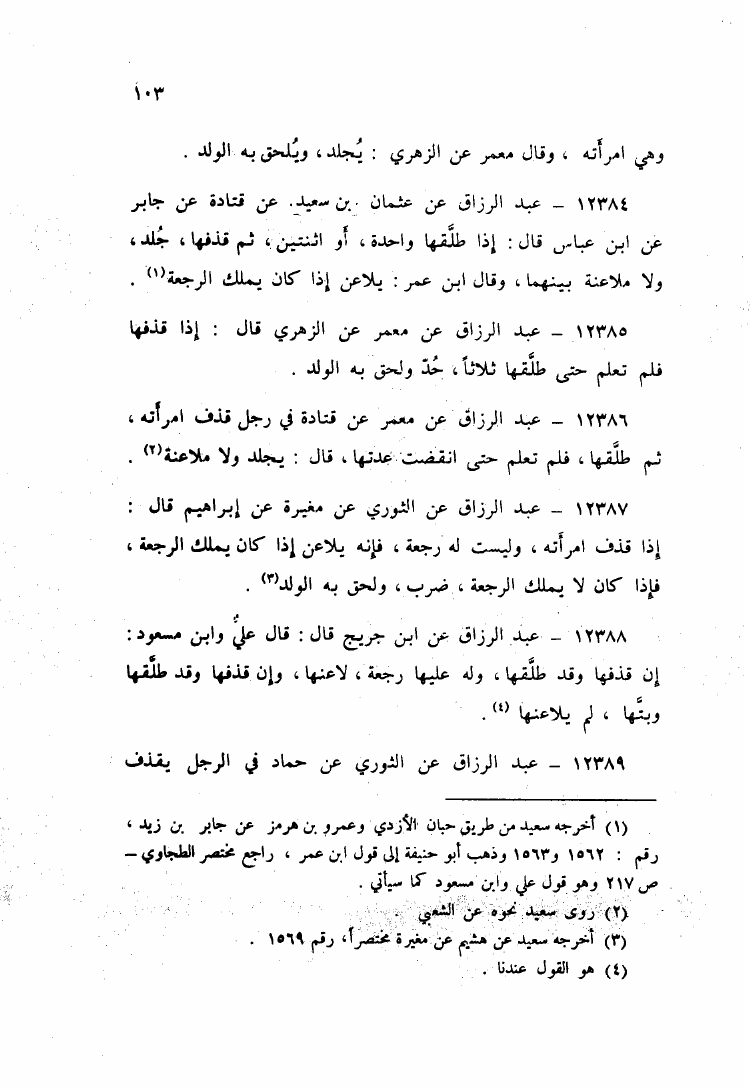 ١٠٣
وهي امرأته ، وقال معمر عن الزهري : يُجلد ، ويُلحق به الولد .
١٢٣٨٤ – عبد الرزاق عن عثمان بن سعيد. عن قتادة عن جابر
عن ابن عباس قال : إذا طلَّقها واحدة ، أو اثنتين ، ثم قذفها ، جُلد ،
ولا ملاعنة بينهما ، وقال ابن عمر : يلاعن إذا كان يملك الرجعة(١) .
١٢٣٨٥ – عبد الرزاق عن معمر عن الزهري قال : إذا قذفها
فلم تعلم حتى طلَّقها ثلاثاً ، حُدّ ولحق به الولد .
١٢٣٨٦ – عبد الرزاق عن معمر عن قتادة في رجل قذف امرأته ،
ثم طلَّقها ، فلم تعلم حتى انقضت عدتها ، قال : يجلد ولا ملاعنة(٢) .
١٢٣٨٧ – عبد الرزاق عن الثوري عن مغيرة عن إبراهيم قال :
إذا قذف امرأته ، وليست له رجعة ، فإنه يلاعن إذا كان يملك الرجعة ،
فإذا كان لا يملك الرجعة ، ضرب ، ولحق به الولد(٣) .
١٢٣٨٨ – عبد الرزاق عن ابن جريج قال : قال عليٌّ وابن مسعود :
إن قذفها وقد طلَّقها ، وله عليها رجعة ، لاعنها ، وإن قذفها وقد طلَّقها
وبتَّها ، لم يلاعنها (٤) .
١٢٣٨٩ – عبد الرزاق عن الثوري عن حماد في الرجل يقذف
(١) أخرجه سعيد من طريق حبان الأزدي وعمرو بن هرمز عن جابر بن زيد ،
رقم : ١٥٦٢ و١٥٦٣ وذهب أبو حنيفة إلى قول ابن عمر ، راجع مختصر الطحاوي –
ص ٢١٧ وهو قول علي وابن مسعود كما سيأتي .
(٢) روى سعيد نحوه عن الشعبي .
(٣) أخرجه سعيد عن هشيم عن مغيرة مختصراً، رقم ١٥٦٩ .
(٤) هو القول عندنا .